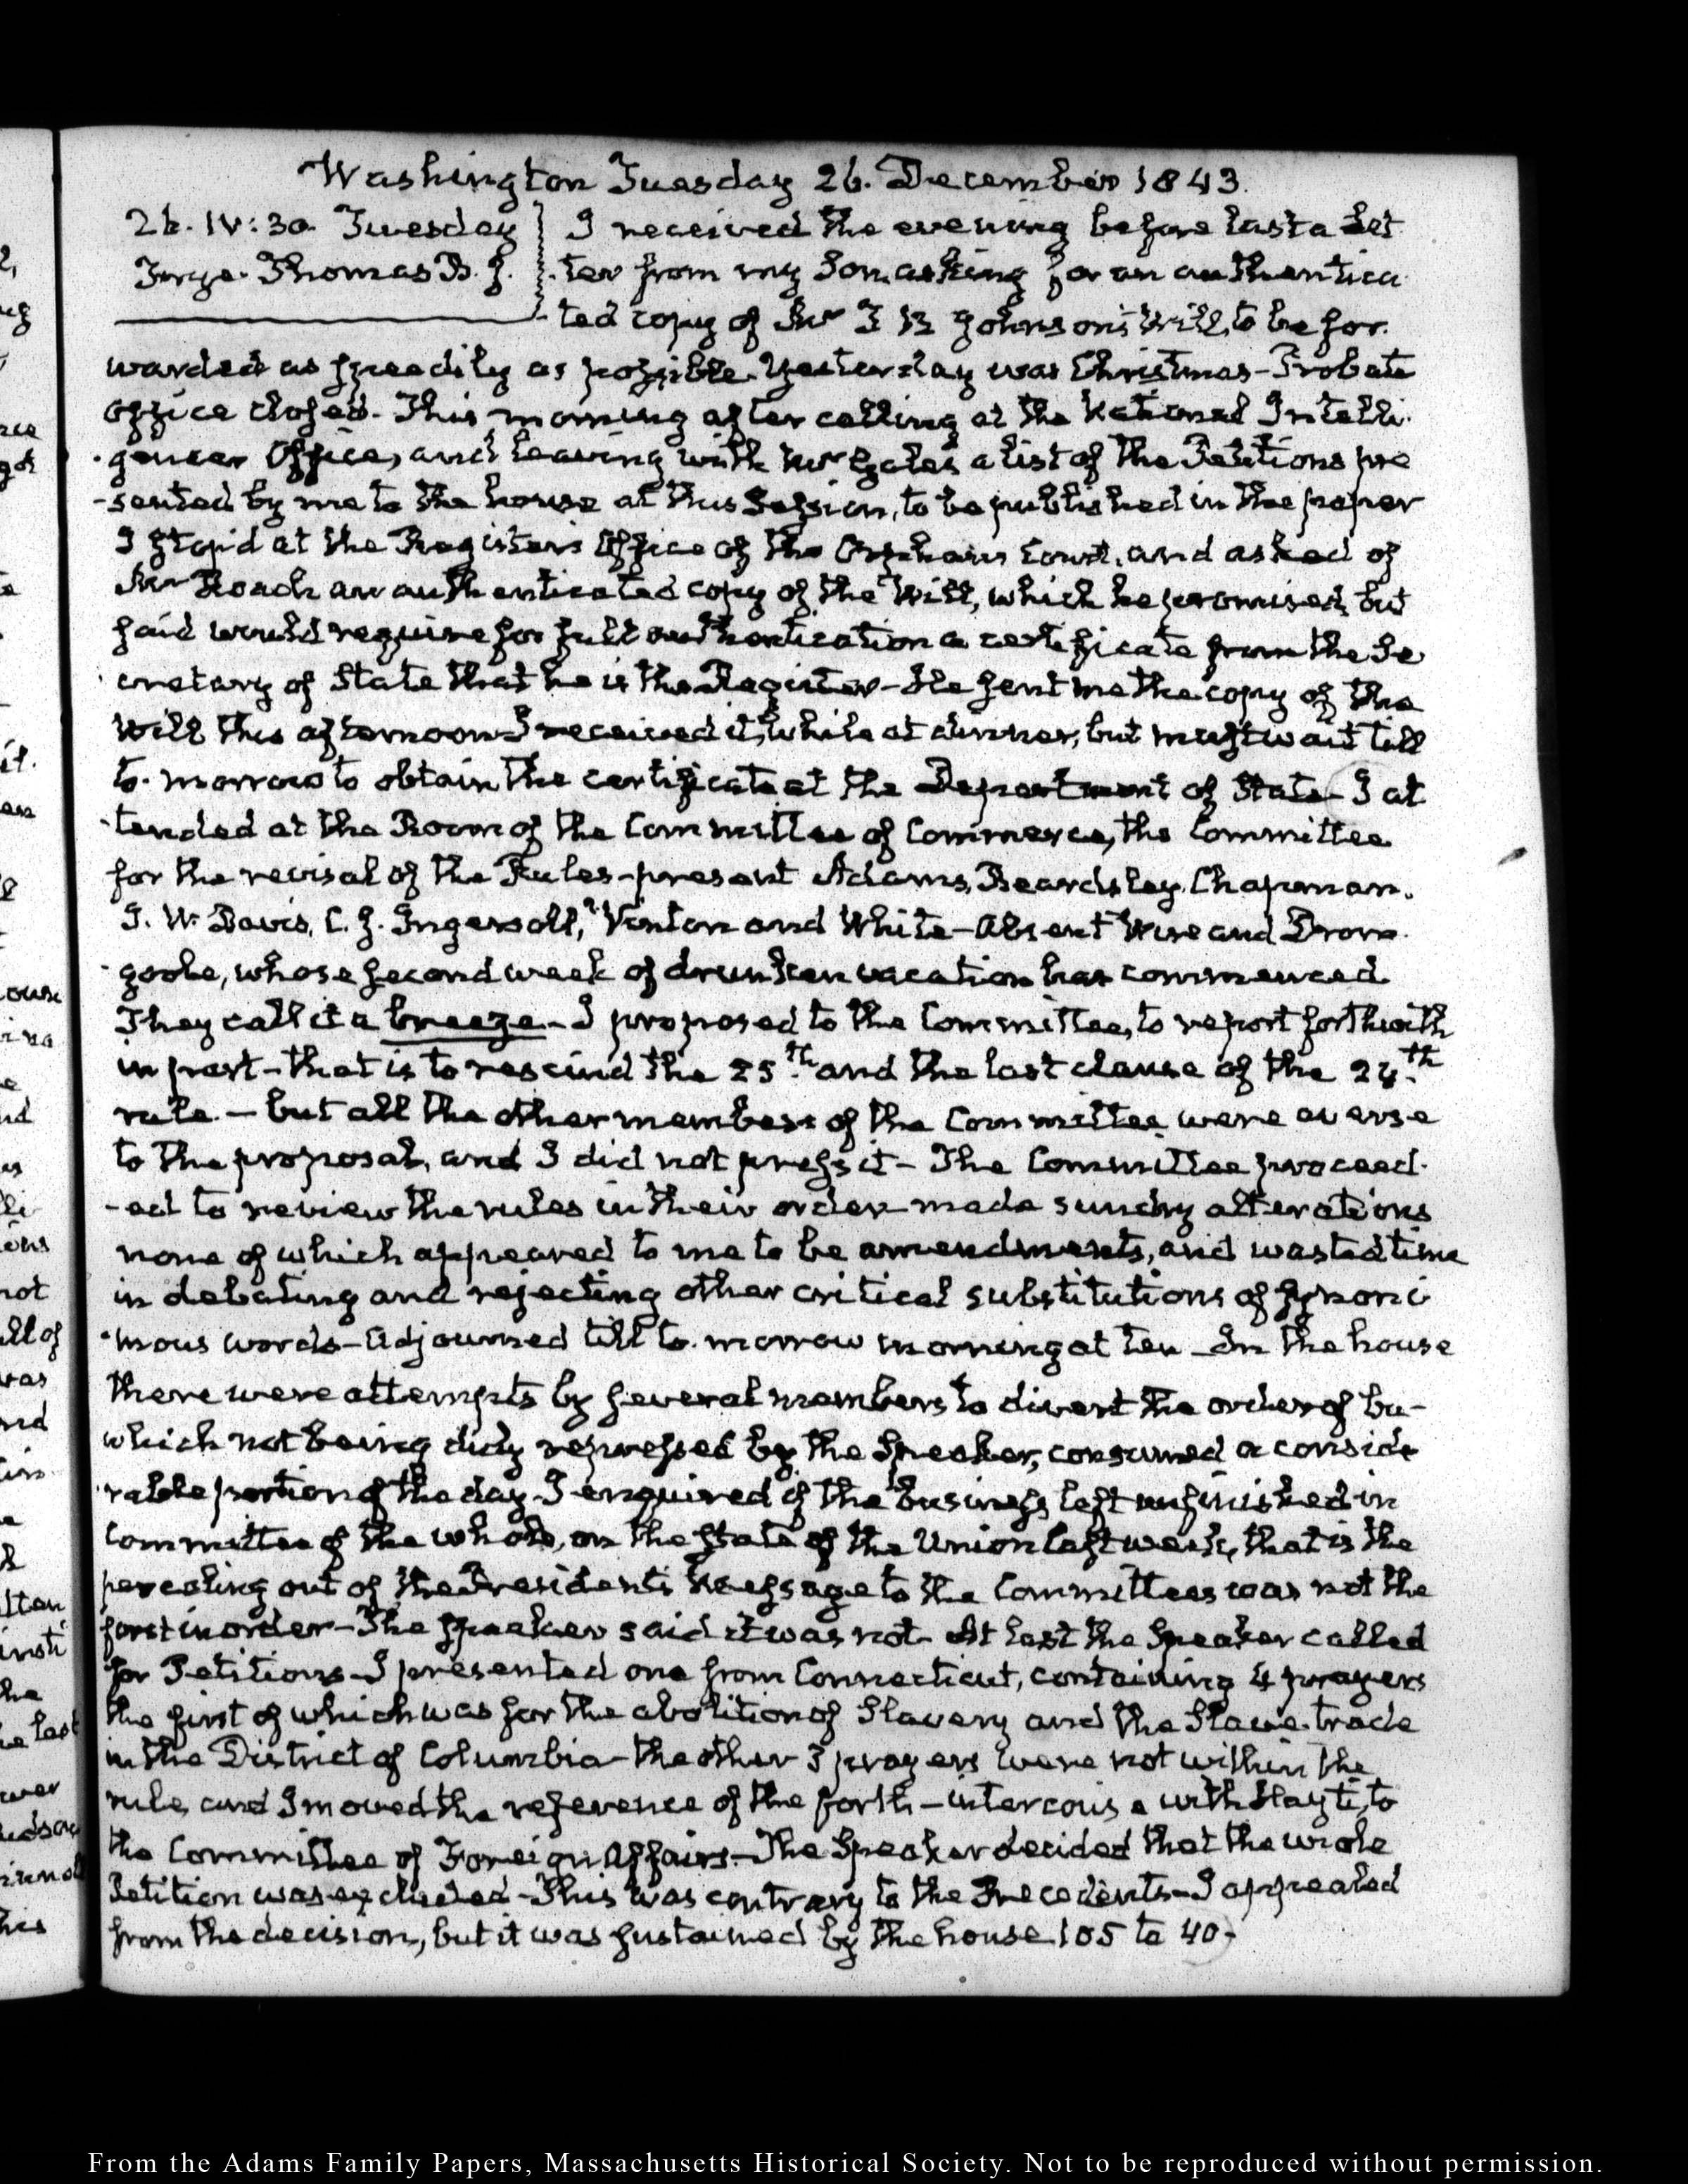 Washington Tuesday 26. December 1843.
26. IV:30. Tuesday
Thomas B. J.
I received the evening before last a Let
ter from my Son, asking for an authentica
ted copy of Mr T B Johnson's Will, to be for
warded as speedily as possible. Yesterday was Christmas - Probate
Office closed. This morning after calling at the National Intelli
gencer Office, and leaving with Mr Gales a list of the Petitions pre
-sented by me to the house at this Session, to be published in the paper
I stop'd at the Register's Office of the Orphans Court, and asked of
Mr Roach an authenticated copy of the Will, which he promised, but
said would require for full authentication a certificate from the Se
cretary of State that he is the Register - He sent me the copy of the
Will this afternoon I received it, while at dinner, but must wait till
to-morrow to obtain the certificate at the Department of State - I at
tended at the Room of the Committee of Commerce, the Committee
for the revisal of the Rules - present Adams, Beardsley, Chapman.
J. W. Davis, C. J. Ingersoll, Vinton and White - Absent Wise and Drom
goole, whose second week of drunken vacation has commenced
They call it a breeze - I proposed to the Committee, to report forthwith
in part - that is to rescind the 25th. and the last clause of the 24th.
rule. - but all the other members of the Committee were averse
to the proposal, and I did not press it - The Committee proceed
-ed to review the rules in their order made sundry alterations
none of which appeared to me to be amendments, and wasted time
in debating and rejecting other critical substitutions of synoni
mous words - Adjourned till to-morrow morning at ten - In the house
there were attempts by several members to divert the order of bu-
which not being duly repressed by the Speaker, consumed a conside
rable portion of the day - I enquired if the business left unfinished in
Committee of the whole, on the state of the Union last week, that is the
parcelling out of the President's Message to the Committees was not the
first in order - The Speaker said it was not - At last the Speaker called
for Petitions - I presented one from Connecticut, containing 4 prayers
the first of which was for the abolition of Slavery and the Slave-trade
in the District of Columbia - the other 3 prayers were not within the
rule, and I moved the reference of the forth - intercourse with Hayti, to
the Committee of Foreign Affairs - The Speaker decided that the whole
Petition was excluded - This was contrary to the Precedents - I appealed
from the decision, but it was sustained by the house 105 to 40.
From the Adams Family Papers, Massachusetts Historical Society. Not to be reproduced without permission.